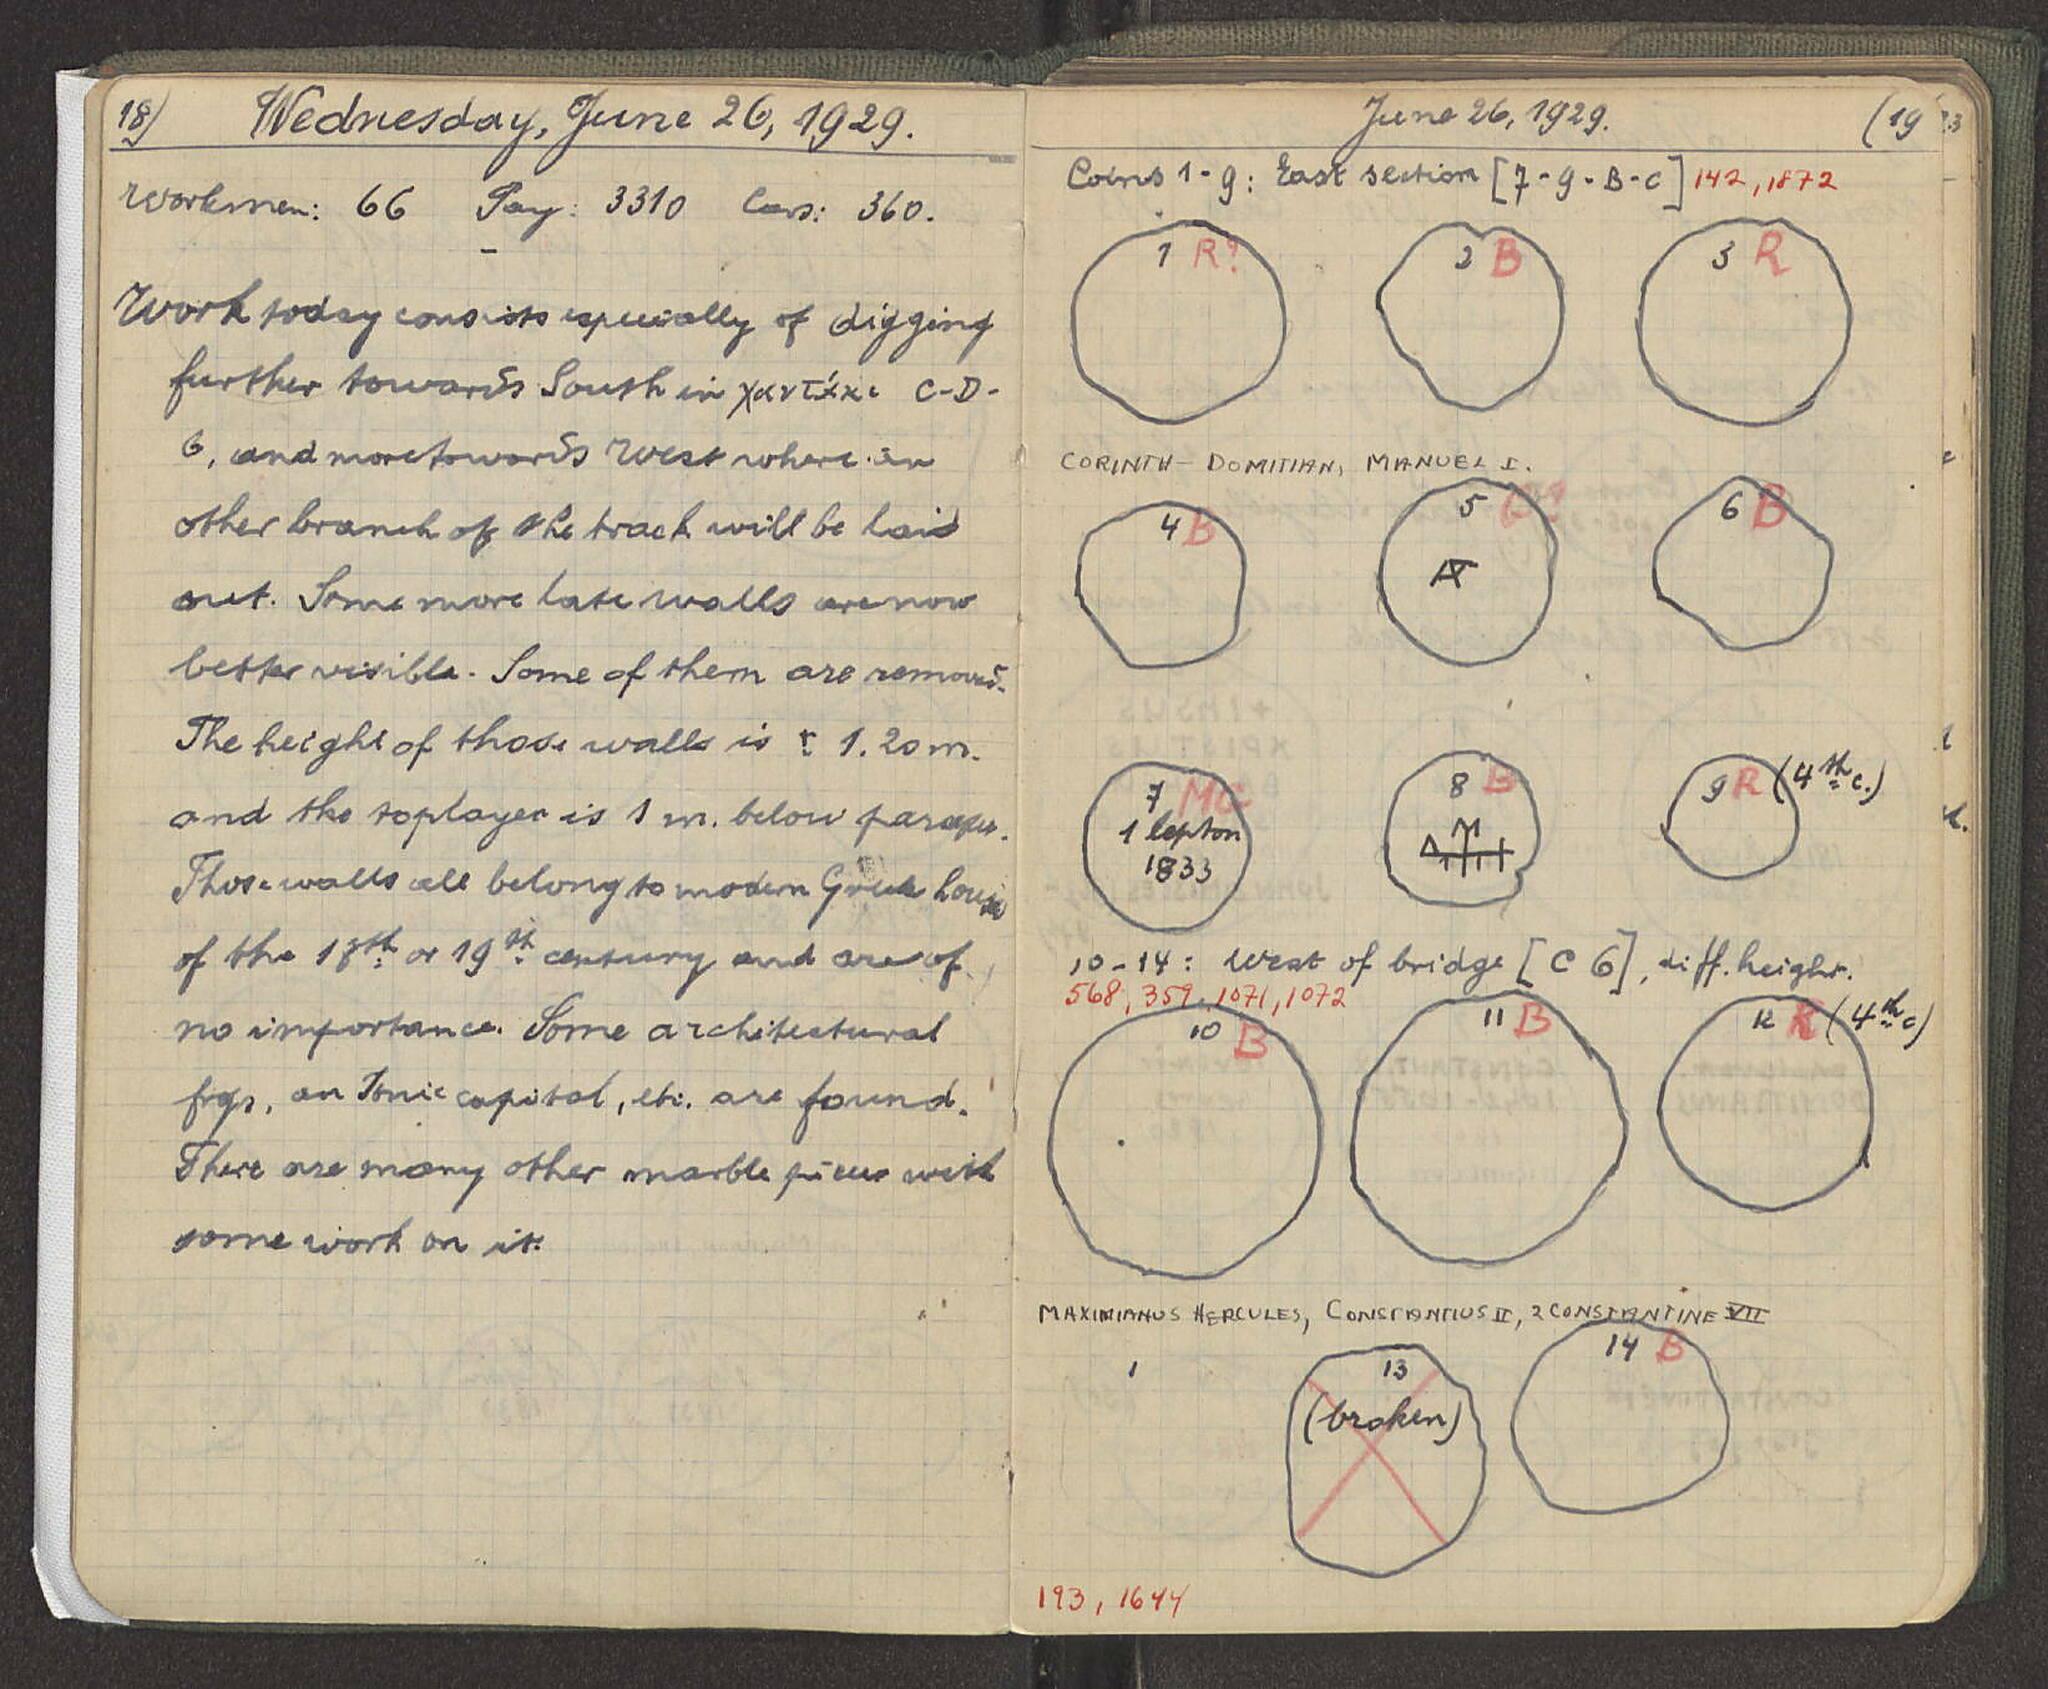 18) Wednesday, June 26, 1929.
Workmen: 66 Pay: 3310 Cars: 360.
Work today consists especially of digging
further towards South in χαντάκι C-D-
6, and more towards West where an
other branch of the track will be laid
out. Some more late walls are now
better visible. Some of them are removed.
The height of those walls is ± 1.20 m.
and the toplayer is 1 m. below
Those walls all belong to modern Greek houses
of the 18th or 19th century and are of
no importance. Some architectural
frgs, an Ionic capital, etc. are found.
There are many other marble pieces with
some work on it.
June 26, 1929. (19
Coins 1-9: East section [7-9-B-C] 142, 1872
1 R? 2 B 3 R
CORINTH - DOMITIAN, MANUEL I.
4 B 5 6 B
7 MG 8 B 9 R (4th c.)
1 lepton
1833
10-14: West of bridge [C 6], diff. height.
568, 359, 1071, 1072
10 B 11 B 12 R (4th c)
MAXIMIANUS HERCULES, CONSTANTIUS II, 2 CONSTANTINE VII
13 14 B
(broken)
193, 1644